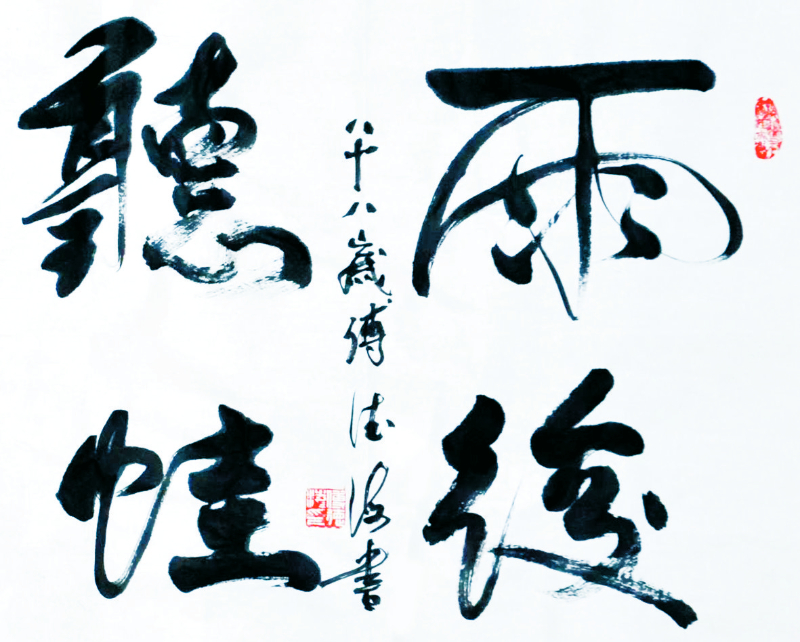 雨後
聽蛙
八十八歲傅書